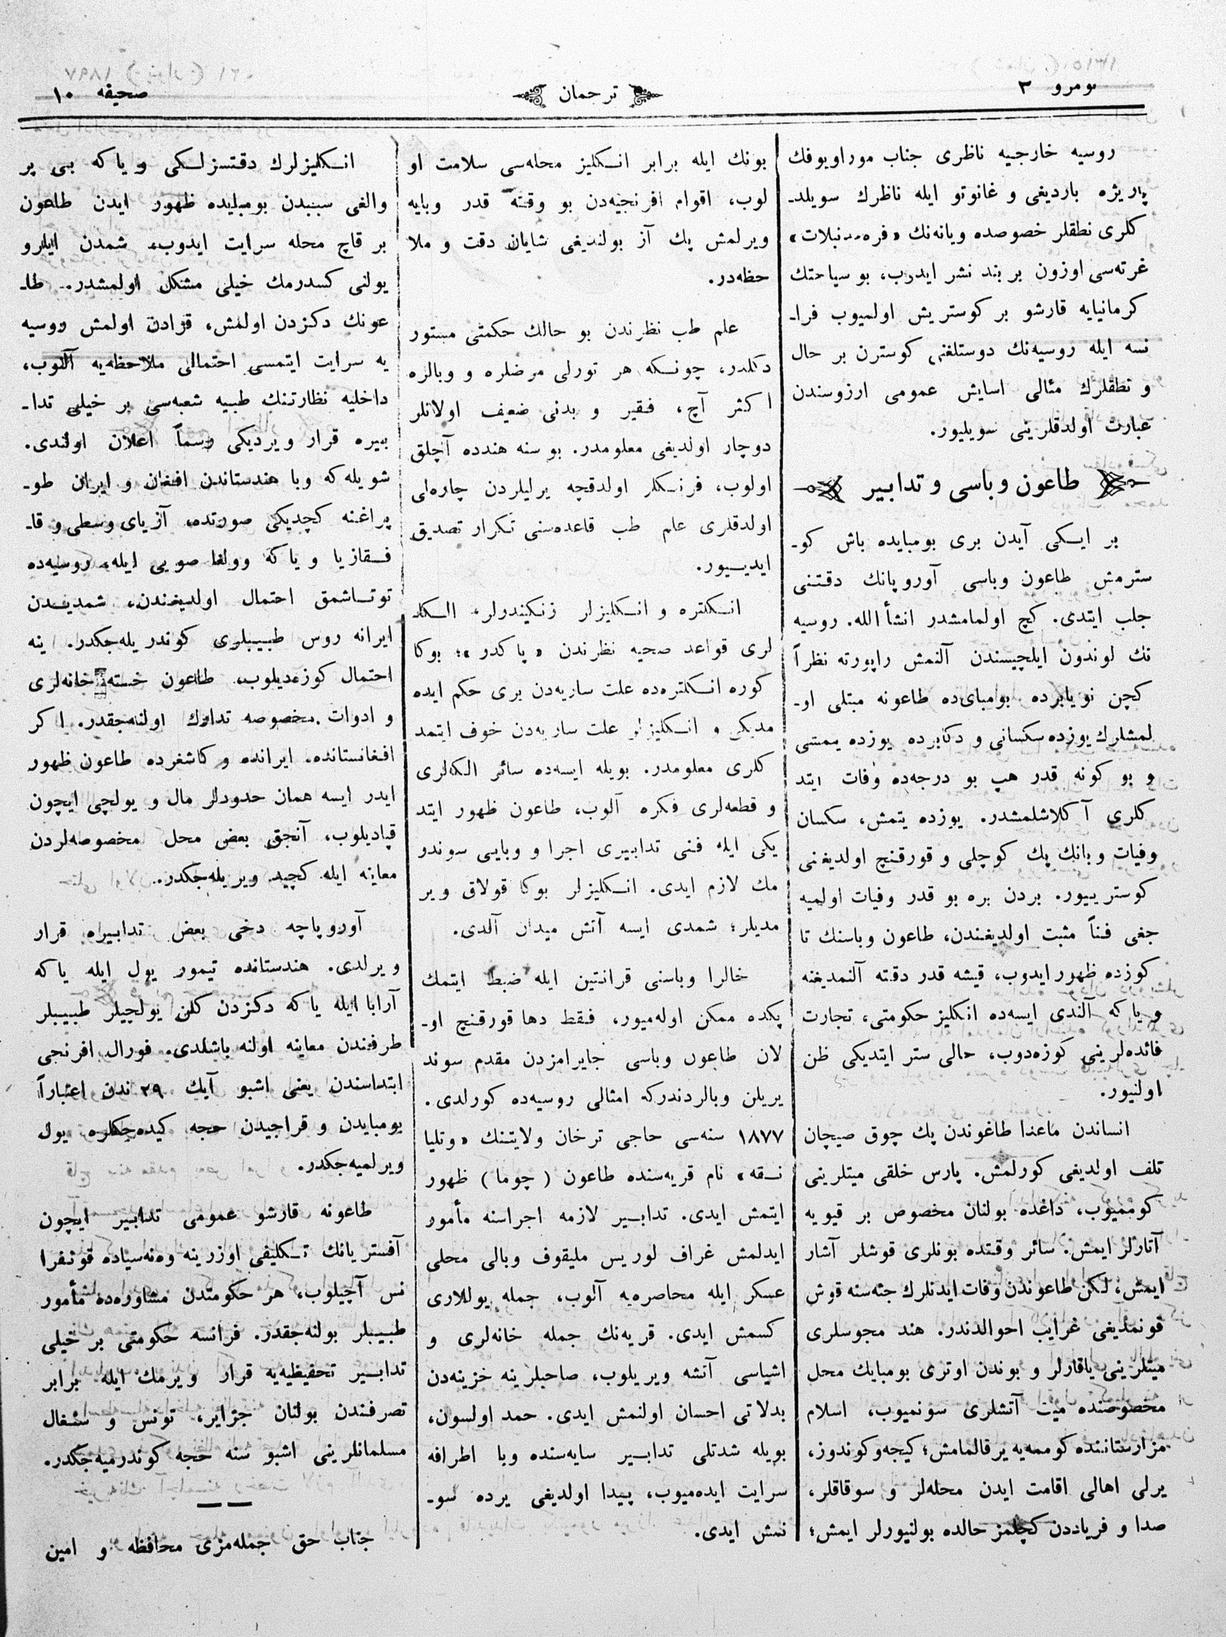 نومرو ٣
ترجمان
صحيفه ١٠
روسيه خارجيه ناظری جناب موراويوفك
پاريژه بارديغی و غانوتو ايله ناظرك سويلد‌ـ
كلری نطقلر خصوصده ويانه‌نك «فره‌مدنبلات»
غزته‌سی اوزون بر بند نشر ايدرب، بو سياحتك
كرمانيايه قارشو بر كوستريش اولميوب فرا‌ـ
نسه ايله روسيه‌نك دوستلغنی كوسترن بر حال
و نطقلرك مثالی اسايش عمومی ارزوسندن
عبارت اولدقلرينی سويليور.
طاعون وباسی و تدابير
بر ايكی آيدن بری بومبايده باش كو‌ـ
سترمش طاعون وباسی آوروپانك دقتنی
جلب ايتدی. كچ اولمامشدر انشأالله. روسيه
نك لوندون ايلچيسندن آلنمش راپورته نظراً
كچن نويابرده بومبای‌ده طاعونه مبتلی او‌ـ
لمشلرك يوزده سكسانی و دكابرده يوزده يتمشی
و بو كونه قدر هپ بو درجه‌ده وفات ايتد
كلری آكلاشلمشدر. يوزده يتمش، سكسان
وفيات وبانك پك كوچلی و قورقنچ اولديغنی
كوسترييور. بردن بره بو قدر وفيات اولميه
جغی فناً مثبت اولديغندن، طاعون وباسنك تا
كوزده ظهور ايدوب، قيشه قدر دقته آلنمديغنه
و ياكه آلندی ايسه‌ده انكليز حكومتی، تجارت
فائده‌لرينی كوزه‌دوب، حالی ستر ايتديكی ظن
اولنيور.
انساندن ماعدا طاغوندن پك چوق صيچان
تلف اولديغی كورلمش. پارس خلقی ميتلرينی
كوممیوب، داغده بولنان مخصوص بر قيويه
آتارلر ايمش. سائر وقتده بونلری قوشلر آشار
ايمش، لكن طاعوندن وفات ايدنلرك جثه‌سنه قوش
قونمديغی غرايب احوالدندر. هند مجوسلری
ميتلرينی ياقارلر و بوندن اوتری بومبايك محل
مخصوصنده ميت آتشلری سونميوب، اسلام
مزارستاننده كوممه‌يه ير قالمامش؛ كيجه وكوندوز،
يرلی اهالی اقامت ايدن محله‌لر و سوقاقلر،
صدا و فرياددن كچلمز حالده بولنيورلر ايمش؛
بونك ايله برابر انكليز محله‌سی سلامت او
لوب، اقوام افرنجيه‌دن بو وقته قدر وبايه
ويرلمش پك آز بولنديغی شايان دقت و ملا
حظه‌در.
علم طب نظرندن بو حالك حكمتی مستور
دكلدر، چونكه هر تورلی مرضلره و وبالره
اكثر آچ، فقير و بدنی ضعيف اولانلر
دوچار اولديغی معلومدر. بو سنه هندده آچلق
اولوب، فرنكلر اولدقجه يرليلردن چاره‌لی
اولدقلری علم طب قاعده‌سنی تكرار تصديق
ايدييور.
انكلتره و انكليزلر زنكيندرلر، الكه
لری قواعد صحيه نظرندن «پاكدر»؛ بوكا
كوره انكلتره‌ده علت ساريه‌دن بری حكم ايده
مديكی و انكليزلر علت ساريه‌دن خوف ايتمد
كلری معلومدر. بويله ايسه‌ده سائر الكه‌لری
و قطعه‌لری فكره آلوب، طاعون ظهور ايتد
يكی ايله فنی تدابيری اجرا و وبايی سوندر
مك لازم ايدی. انكليزلر بوكا قولاق وير
مديلر؛ شمدی ايسه آتش ميدان آلدی.
خالرا وباسنی قرانتين ايله ضبط ايتمك
پكده ممكن اوله‌ميور، فقط دها قورقنچ او‌ـ
لان طاعون وباسی جايرامزدن مقدم سوند
يريلن وبالردندركه امثالی روسيه‌ده كورلدی.
١٨٧٧ سنه‌سی حاجی ترخان ولايتنك «وتليا
نقه» نام قريه‌سنده طاعون (چوما) ظهور
ايتمش ايدی. تدابير لازمه اجراسنه مأمور
ايدلمش غراف لوريس مليقوف وبالی محلی
عسكر ايله محاصره‌يه آلوب، جمله يوللاری
كسمش ايدی. قريه‌نك جمله خانه‌لری و
اشياسی آتشه ويريلوب، صاحبلرينه خزينه‌دن
بدلاتی احسان اولنمش ايدی. حمد اولسون،
بويله شدتلی تدابير سايه‌سنده وبا اطرافه
سرايت ايده‌ميوب، پيدا اولديغی يرده سو‌ـ
نمش ايدی.
انكليزلرك دقتسزلكی و ياكه بی پر
والغی سببدن بومبليده ظهور ايدن طاعون
بر قاچ محله سرايت ايدوب، شمدن ايلرو
يولنی كسدرمك خيلی مشكل اولمشدر. طا‌ـ
عونك دكزدن اولمش، قرادن اولمش روسيه
يه سرايت ايتمسی احتمالی ملاحظه‌يه آلنوب،
داخليه نظارتنك طبيه شعبه‌سی بر خيلی تدا‌ـ
بيره قرار ويرديكی رسماً اعلان اولندی.
شويله‌كه وبا هندستاندن افغان و ايران طو‌ـ
پراغنه كچديكی صورتده، آزيای وسطی و قا‌ـ
فقازيا و ياكه وولغا صويی ايله روسيه‌ده
توتاشمق احتمال اولديغندن، شمديدن
ايرانه روس طبيبلری كوندريله‌جكدر. ينه
احتمال كوزه‌ديلوب، طاعون خسته‌خانه‌لری
و ادوات مخصوصه تدارك اولنه‌جقدر. اكر
افغانستانده، ايرانده و كاشغرده طاعون ظهور
ايدر ايسه همان حدودلر مال و يولچی ايچون
قپاديلوب، آنجق بعض محل مخصوصه‌لردن
معاينه ايله كچيد ويريله‌جكدر.
آوروپاچه دخی بعض تدابيره قرار
ويرلدی. هندستانده تيمور يول ايله ياكه
آرابا ايله ياكه دكزدن كلن يولجيلر طبيبلر
طرفندن معاينه اولنه باشلدی. فورال افرنجی
ابتداسندن يعنی اشبو آيك ٢٩ ندن اعتباراً
بومبايدن و قراجيدن حجه كيده‌جكلره يول
ويرلميه‌جكدر.
طاعونه قارشو عمومی تدابير ايچون
آفستريانك تكليفی اوزرينه وه‌نه‌سياده قونفرا
نس آچيلوب، هر حكومتدن مشاوره‌ده مأمور
طبيبلر بولنه‌جقدر. فرانسه حكومتی بر خيلی
تدابير تحفيظيه‌يه قرار ويرمك ايله برابر
تصرفندن بولنان جزاير، تونس و سنغال
مسلمانلرينی اشبو سنه حجه كوندرميه‌جكدر.
جناب حق جمله‌مزی محافظه و امين